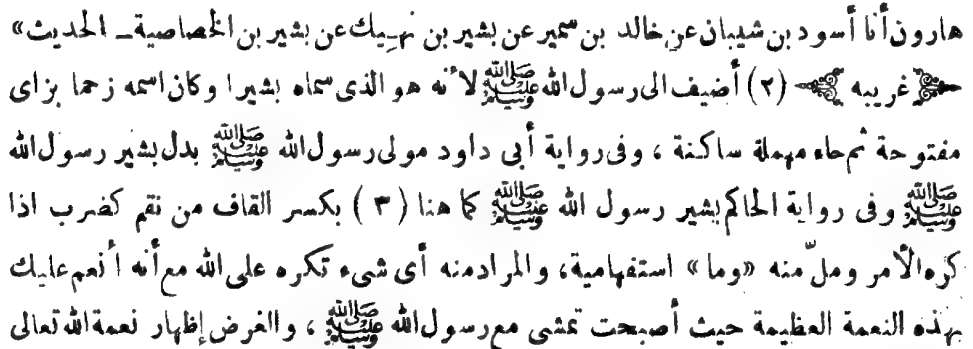 هارون أنا أسود بن شيبان عن خالد بن سمير عن بشير بن نهيك عن بشير بن الخصاصية ــ الحديث»
﴿ غريبه ﴾ (٢) أضيف الى رسول الله ﷺ لأنه هو الذى سماه بشيرا وكان اسمه زحما بزاى
مفتوحة ثم حاء مهملة ساكنة ، وفى رواية أبى داود مولى رسول الله ﷺ بدل بشير رسول الله
ﷺ وفى رواية الحاكم بشير رسول الله ﷺ كما هنا (٣) بكسر القاف من نقم كضرب اذا
كره الأمر وملّ منه «وما» استفهامية، والمراد منه أى شىء تكره على الله مع أنه أنعم عليك
بهذه النعمة العظيمة حيث أصبحت تمشى مع رسول الله ﷺ ، والغرض إظهار نعمة الله تعالى